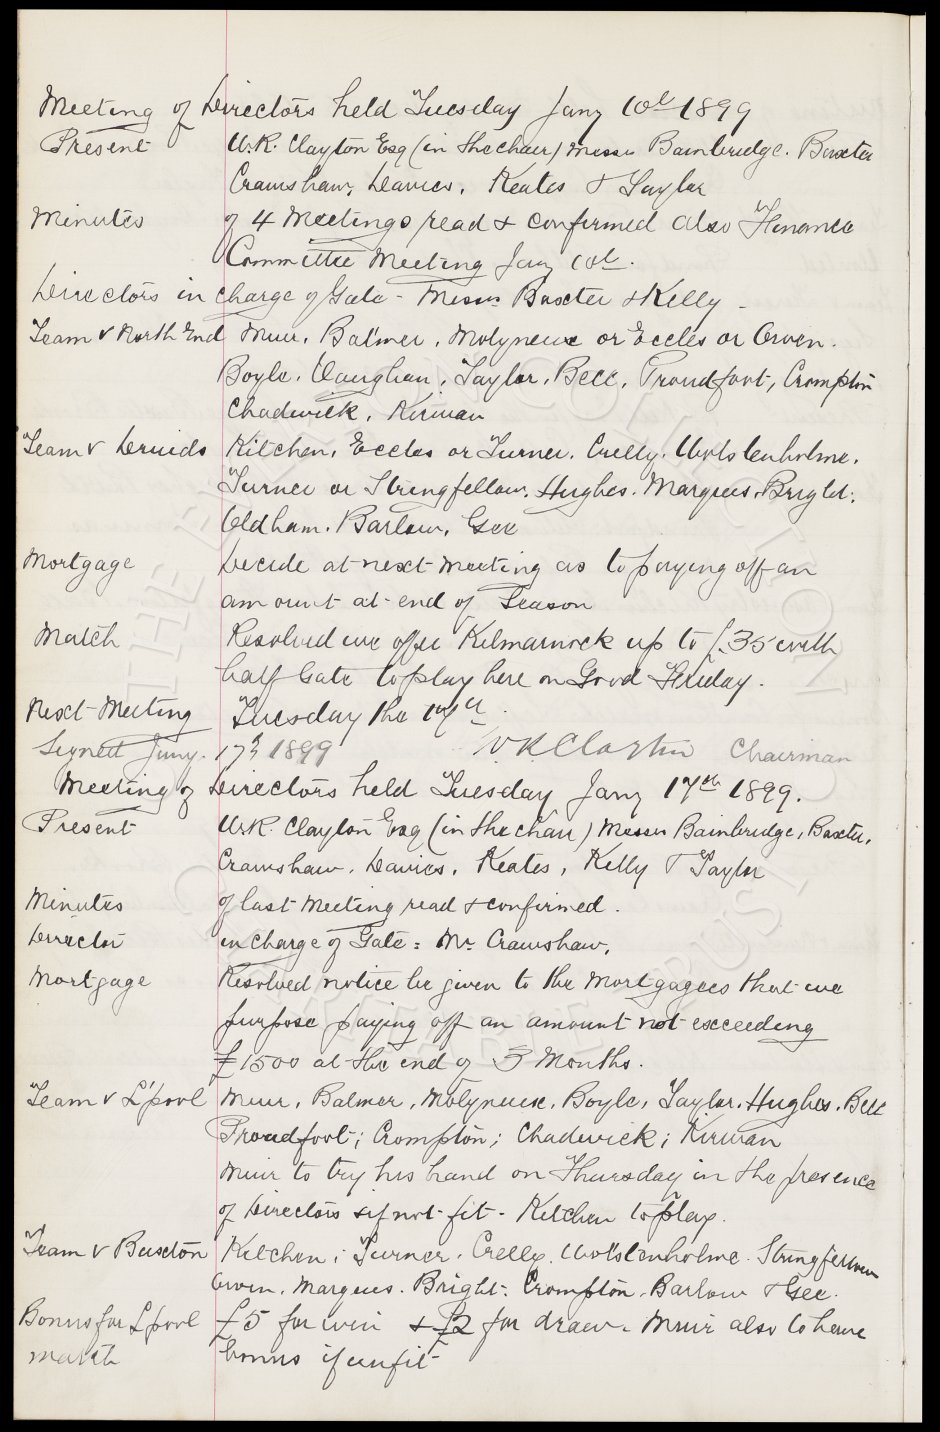 Meeting of Directors held Tuesday Jany 10th 1899
Present W.R. Clayton Esq (in the chair) Messrs Bainbridge. Baxter
Crawshaw, Davies, Keates & Taylor
Minutes of 4 Meetings read & confirmed also Finance
Committee Meeting Jany 10th.
Directors in charge of Gate - Messrs Baxter & Kelly -
Team v North End Muir, Balmer, Molyneux or Eccles or Owen.
Boyle, Vaughan, Taylor, Bell, Proudfoot, Crompton
Chadwick, Kirwan
Team v Druids Kitchen, Eccles or Turner, Crelly, Wolstenholme,
Turner or Stringfellow, Hughes, Marques, Bright,
Oldham, Barlow, Gee
Mortgage Decide at next Meeting as to paying off an
amount at end of Season
Match Resolved we offer Kilmarnock up to £35 with
half Gate to play here on Good Friday.
Next Meeting Tuesday the 17th.
Signed Jany. 17th 1899 W.R. Clayton Chairman
Meeting of Directors held Tuesday Jany 17th 1899.
Present W.R. Clayton Esq (in the chair) Messrs Bainbridge, Baxter,
Crawshaw, Davies, Keates, Kelly & Taylor
Minutes of last Meeting read & confirmed.
Director in charge of Gate = Mr Crawshaw,
Mortgage Resolved notice be given to the Mortgagees that we
purpose paying off an amount not exceeding
£1500 at the end of 3 Months.
Team v L'pool Muir, Balmer, Molyneux, Boyle, Taylor, Hughes, Bell
Proudfoot; Crompton; Chadwick; Kirwan
Muir to try his hand on Thursday in the presence
of Directors & if not fit - Kitchen to play.
Team v Buxton Kitchen; Turner, Crelly, Wolstenholme, Stringfellow
Owen, Marques, Bright, Crompton, Barlow & Gee.
Bonus for L'pool £5 for win & £2 for draw. Muir also to have
match bonus if unfit
THE EVERTON COLLECTION
CHARITABLE TRUST